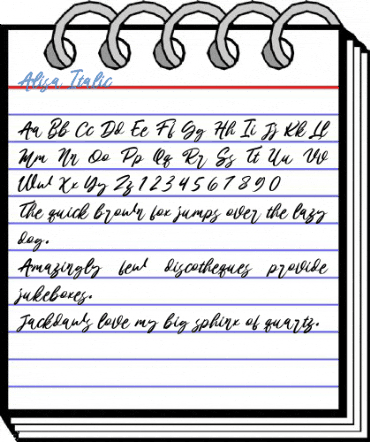 Alisa Italic
Aa Bb Cc Dd Ee Ff Gg Hh Ii Jj Kk Ll
Mm Nn Oo Pp Qq Rr Ss Tt Uu Vv
Ww Xx Yy Zz 1 2 3 4 5 6 7 8 9 0
The quick brown fox jumps over the lazy
dog.
Amazingly few discotheques provide
jukeboxes.
Jackdaws love my big sphinx of quartz.